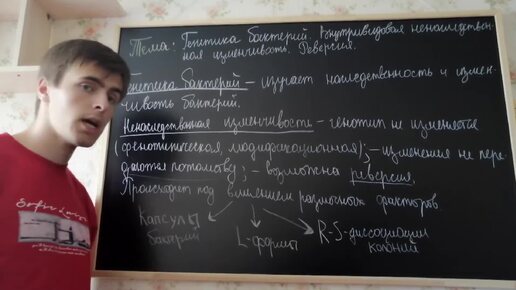 Тема: Генетика бактерий. Внутривидовая ненаследствен-
ная изменчивость. Реверсия.
Генетика бактерий – изучает наследственность и измен-
чивость бактерий.
Ненаследственная изменчивость – генотип не изменяется
(фенотипическая, модификационная); – изменения не пере-
даются потомству; – возможна реверсия.
Происходит под влиянием различных факторов.
Капсулы
бактерий
L-формы
R-S-диссоциации
колоний